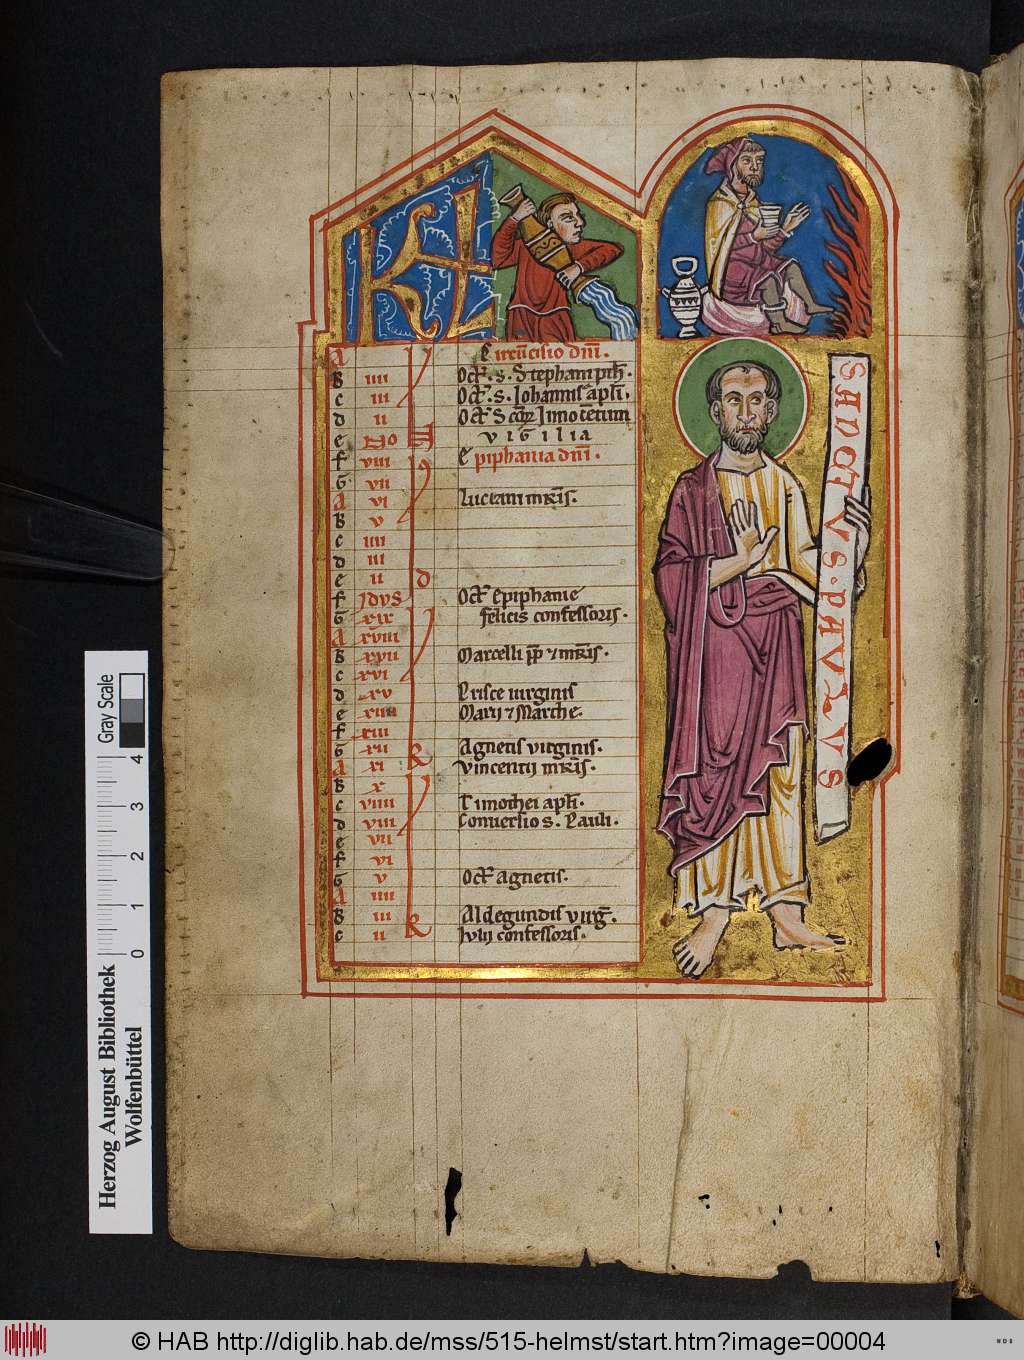 KL
A Circu̅cisio dn̅i.
B iiii Oct̅. s. Stephani pth̅.
c iii Oct̅. s. Iohannis apl̅i.
d ii Oct̅ Sco̅ꝝ Innoce̅tium
e No vigilia
f viii Epiphania dn̅i.
G vii
A vi Luciani mr̅is.
B v
c iiii
d iii
e ii
f Idvs Oct̅ epiphanie
G xix felicis confessoris.
A xviii
B xvii Marcelli pp̅ ⁊ mr̅is.
c xvi
d xv Prisce uirginis
e xiiii Marii ⁊ Marche.
f xiii
G xii Agnetis virginis.
A xi vincentii mr̅is.
B x
c viiii Timothei apl̅i.
d viii Conuersio s. Pauli.
e vii
f vi
G v Oct̅ agnetis.
A iiii
B iii Aldegundis virg̅.
c ii Iulii confessoris.
SANCTVS·PAVLVS
Gray Scale
0 1 2 3 4
Herzog August Bibliothek
Wolfenbüttel
© HAB http://diglib.hab.de/mss/515-helmst/start.htm?image=00004